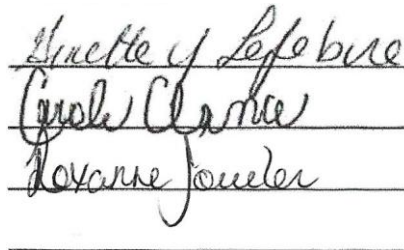 Ginette Y Lefebvre
Carole
Roxanne Fowler